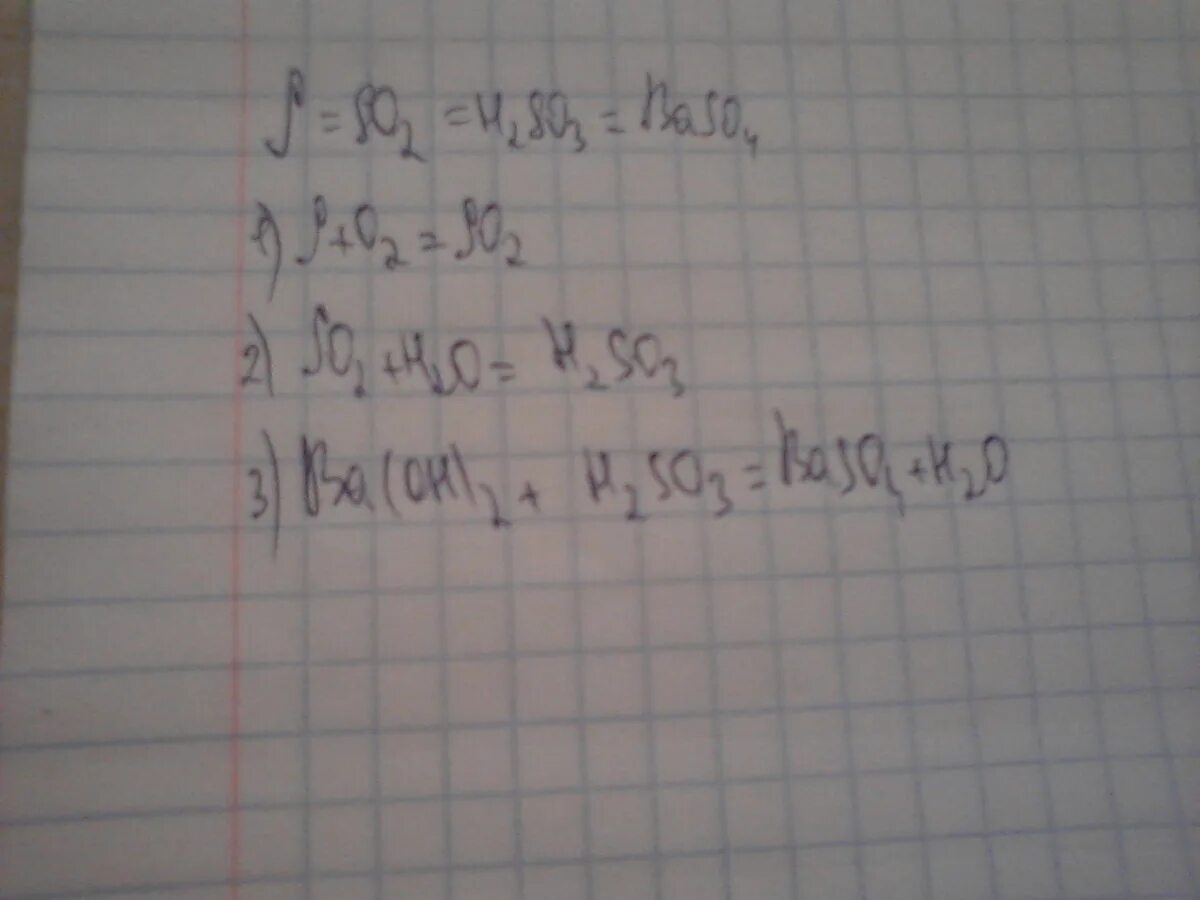 S = SO₂ = H₂SO₃ = BaSO₄
1) S + O₂ = SO₂
2) SO₂ + H₂O = H₂SO₃
3) Ba(OH)₂ + H₂SO₃ = BaSO₄ + H₂O